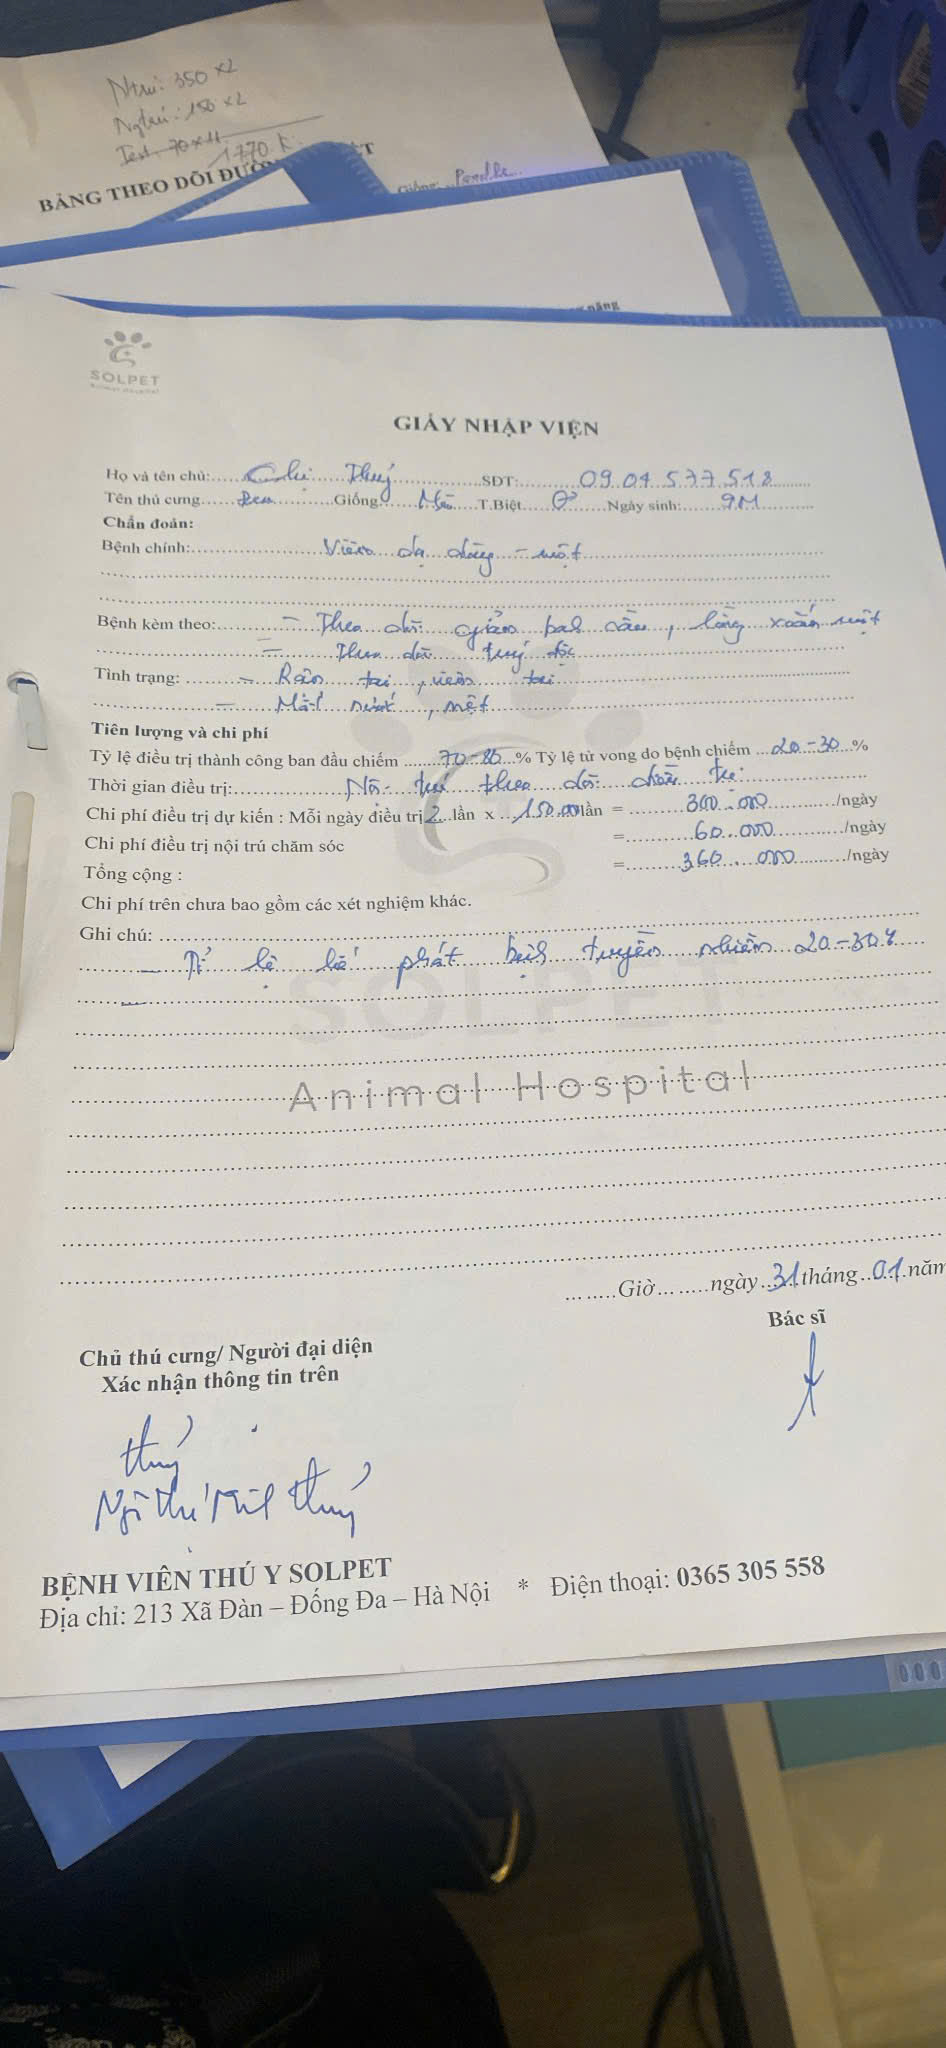 Ntrú: 350 x2
Ngtrú: 150 x2
Test 70 x 11
1770 k
BẢNG THEO DÕI ĐƯỜ
T
Giống: Poodle
năng
SOLPET
Animal Hospital
GIẤY NHẬP VIỆN
Họ và tên chủ: Chị Thuý SĐT: 0904 577 518
Tên thú cưng Đen Giống Mèo T.Biệt ♂ Ngày sinh: 9M
Chẩn đoán:
Bệnh chính: Viêm dạ dày - ruột
Bệnh kèm theo: - Theo dõi giảm bạch cầu, lồng xoắn ruột
- Theo dõi tuý độc
Tình trạng: - Rận tai, viêm tai
- Mất nước, mệt
Tiên lượng và chi phí
Tỷ lệ điều trị thành công ban đầu chiếm 70-80 % Tỷ lệ tử vong do bệnh chiếm 20-30 %
Thời gian điều trị: Nội trú theo dõi điều trị
Chi phí điều trị dự kiến : Mỗi ngày điều trị 2 lần x 150.000 lần = 300.000 /ngày
Chi phí điều trị nội trú chăm sóc = 60.000 /ngày
Tổng cộng : = 360.000 /ngày
Chi phí trên chưa bao gồm các xét nghiệm khác.
Ghi chú:
- Tỉ lệ kế phát bệnh truyền nhiễm 20-30%
SOLPET
Animal Hospital
Giờ ngày 31 tháng 01 năm
Bác sĩ
Chủ thú cưng/ Người đại diện
Xác nhận thông tin trên
thuý
Ngô Thị Minh Thuý
BỆNH VIỆN THÚ Y SOLPET
Địa chỉ: 213 Xã Đàn – Đống Đa – Hà Nội * Điện thoại: 0365 305 558